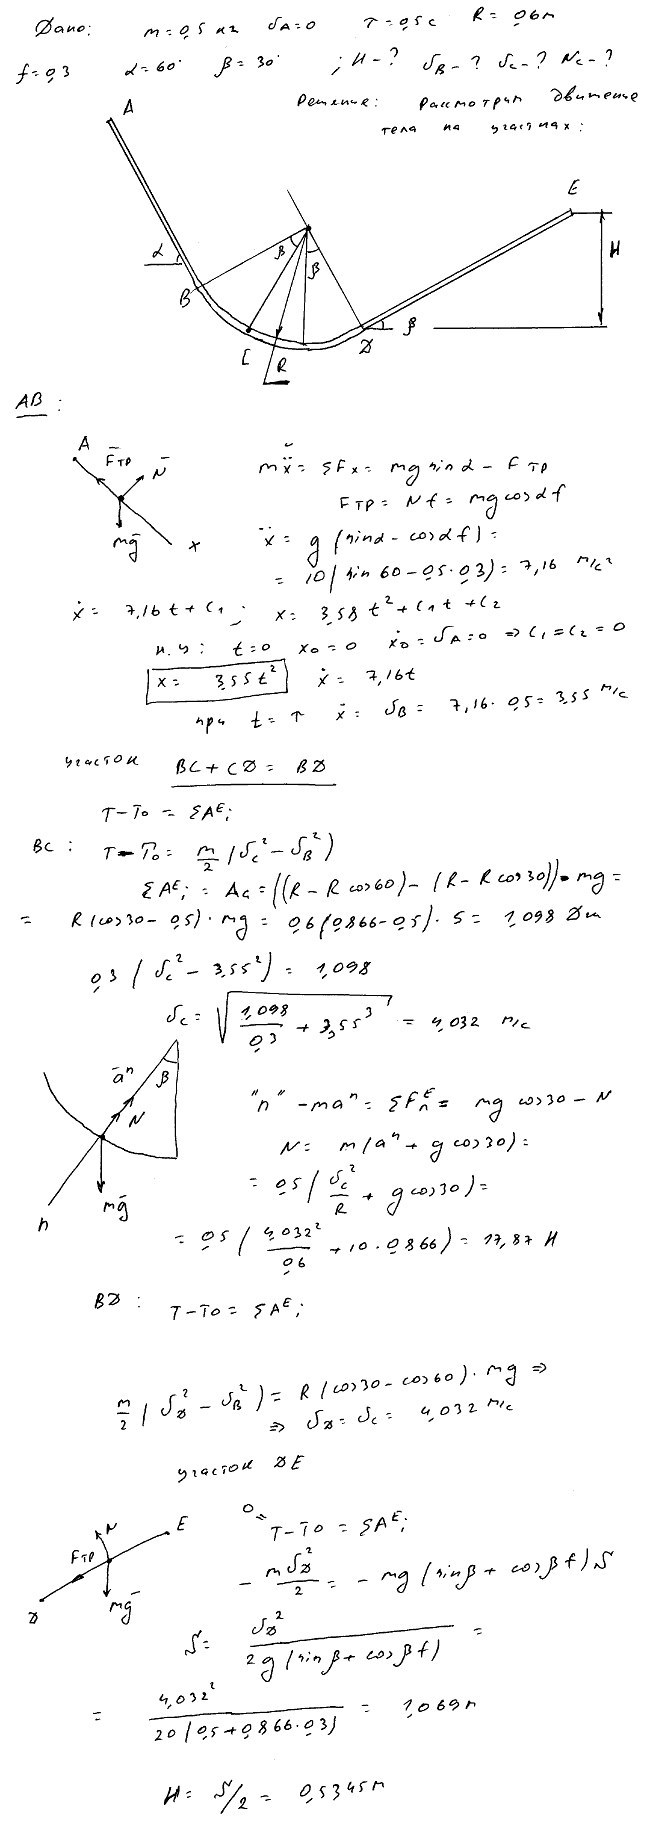 Дано: m=0,5 кг υA=0 τ=0,5с R=0,6м
f=0,3 α=60° β=30° ; H-? υB-? υc-? Nc-?
Решение: Рассмотрим движение
тела на участках:
A
E
α
β
β
H
B
C
R
D
β
AB:
A
F̄тр
N̄
mḡ
x
mẍ = ΣFx = mg sin α - Fтр
Fтр = Nf = mg cos α f
ẍ = g (sin α - cos α f) =
= 10 (sin 60 - 0,5·0,3) = 7,16 м/с²
ẋ = 7,16t + C1; x = 3,58t² + C1t + C2
н.у: t=0 x0=0 ẋ0=υA=0 ⇒ C1=C2=0
x = 3,55t² ẋ = 7,16t
при t=τ ẋ = υB = 7,16·0,5 = 3,55 м/с
участок BC + CD = BD
T-T0 = ΣAᴱi
BC: T-T0 = m/2 (υc² - υB²)
ΣAᴱi = AG = ((R - R cos 60) - (R - R cos 30))·mg =
= R(cos 30 - 0,5)·mg = 0,6(0,866-0,5)·5 = 1,098 Дж
0,3 (υc² - 3,55²) = 1,098
υc = √(1,098/0,3 + 3,55³) = 4,032 м/с
āⁿ
β
N
mḡ
n
"n" -maⁿ = ΣFnᴱ = mg cos 30 - N
N = m(aⁿ + g cos 30) =
= 0,5 (υc²/R + g cos 30) =
= 0,5 (4,032²/0,6 + 10·0,866) = 17,87 Н
BD: T-T0 = ΣAᴱi
m/2 (υD² - υB²) = R(cos 30 - cos 60)·mg ⇒
⇒ υD = υc = 4,032 м/с
участок DE
N
E
Fтр
D
mḡ
0=
T-T0 = ΣAᴱi
- mυD²/2 = - mg (sin β + cos β f) S
S = υD²/2g(sin β + cos β f) =
= 4,032²/20(0,5+0,866·0,3) = 1,069м
H = S/2 = 0,5345м